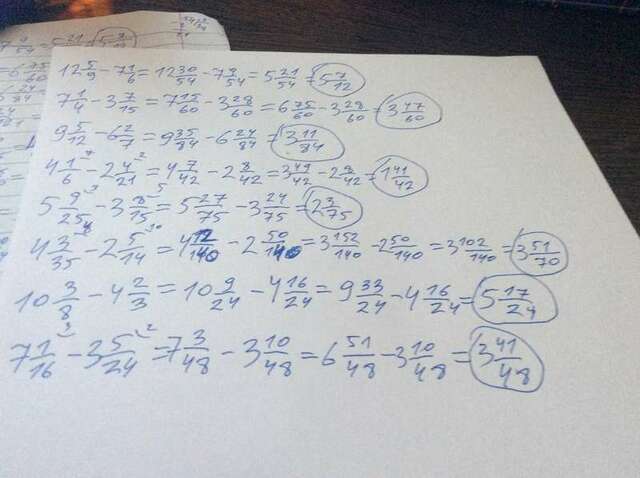 12 5/9 - 7 1/6 = 12 30/54 - 7 9/54 = 5 21/54 = 5 7/12
7 1/4 - 3 7/15 = 7 15/60 - 3 28/60 = 6 75/60 - 3 28/60 = 3 47/60
9 5/12 - 6 2/7 = 9 35/84 - 6 24/84 = 3 11/84
4 1/6 - 2 4/21 = 4 7/42 - 2 8/42 = 3 49/42 - 2 8/42 = 1 41/42
5 9/25 - 3 8/15 = 5 27/75 - 3 24/75 = 2 3/75
4 3/35 - 2 5/14 = 4 12/140 - 2 50/140 = 3 152/140 - 2 50/140 = 3 102/140 = 3 51/70
10 3/8 - 4 2/3 = 10 9/24 - 4 16/24 = 9 33/24 - 4 16/24 = 5 17/24
7 1/16 - 3 5/24 = 7 3/48 - 3 10/48 = 6 51/48 - 3 10/48 = 3 41/48